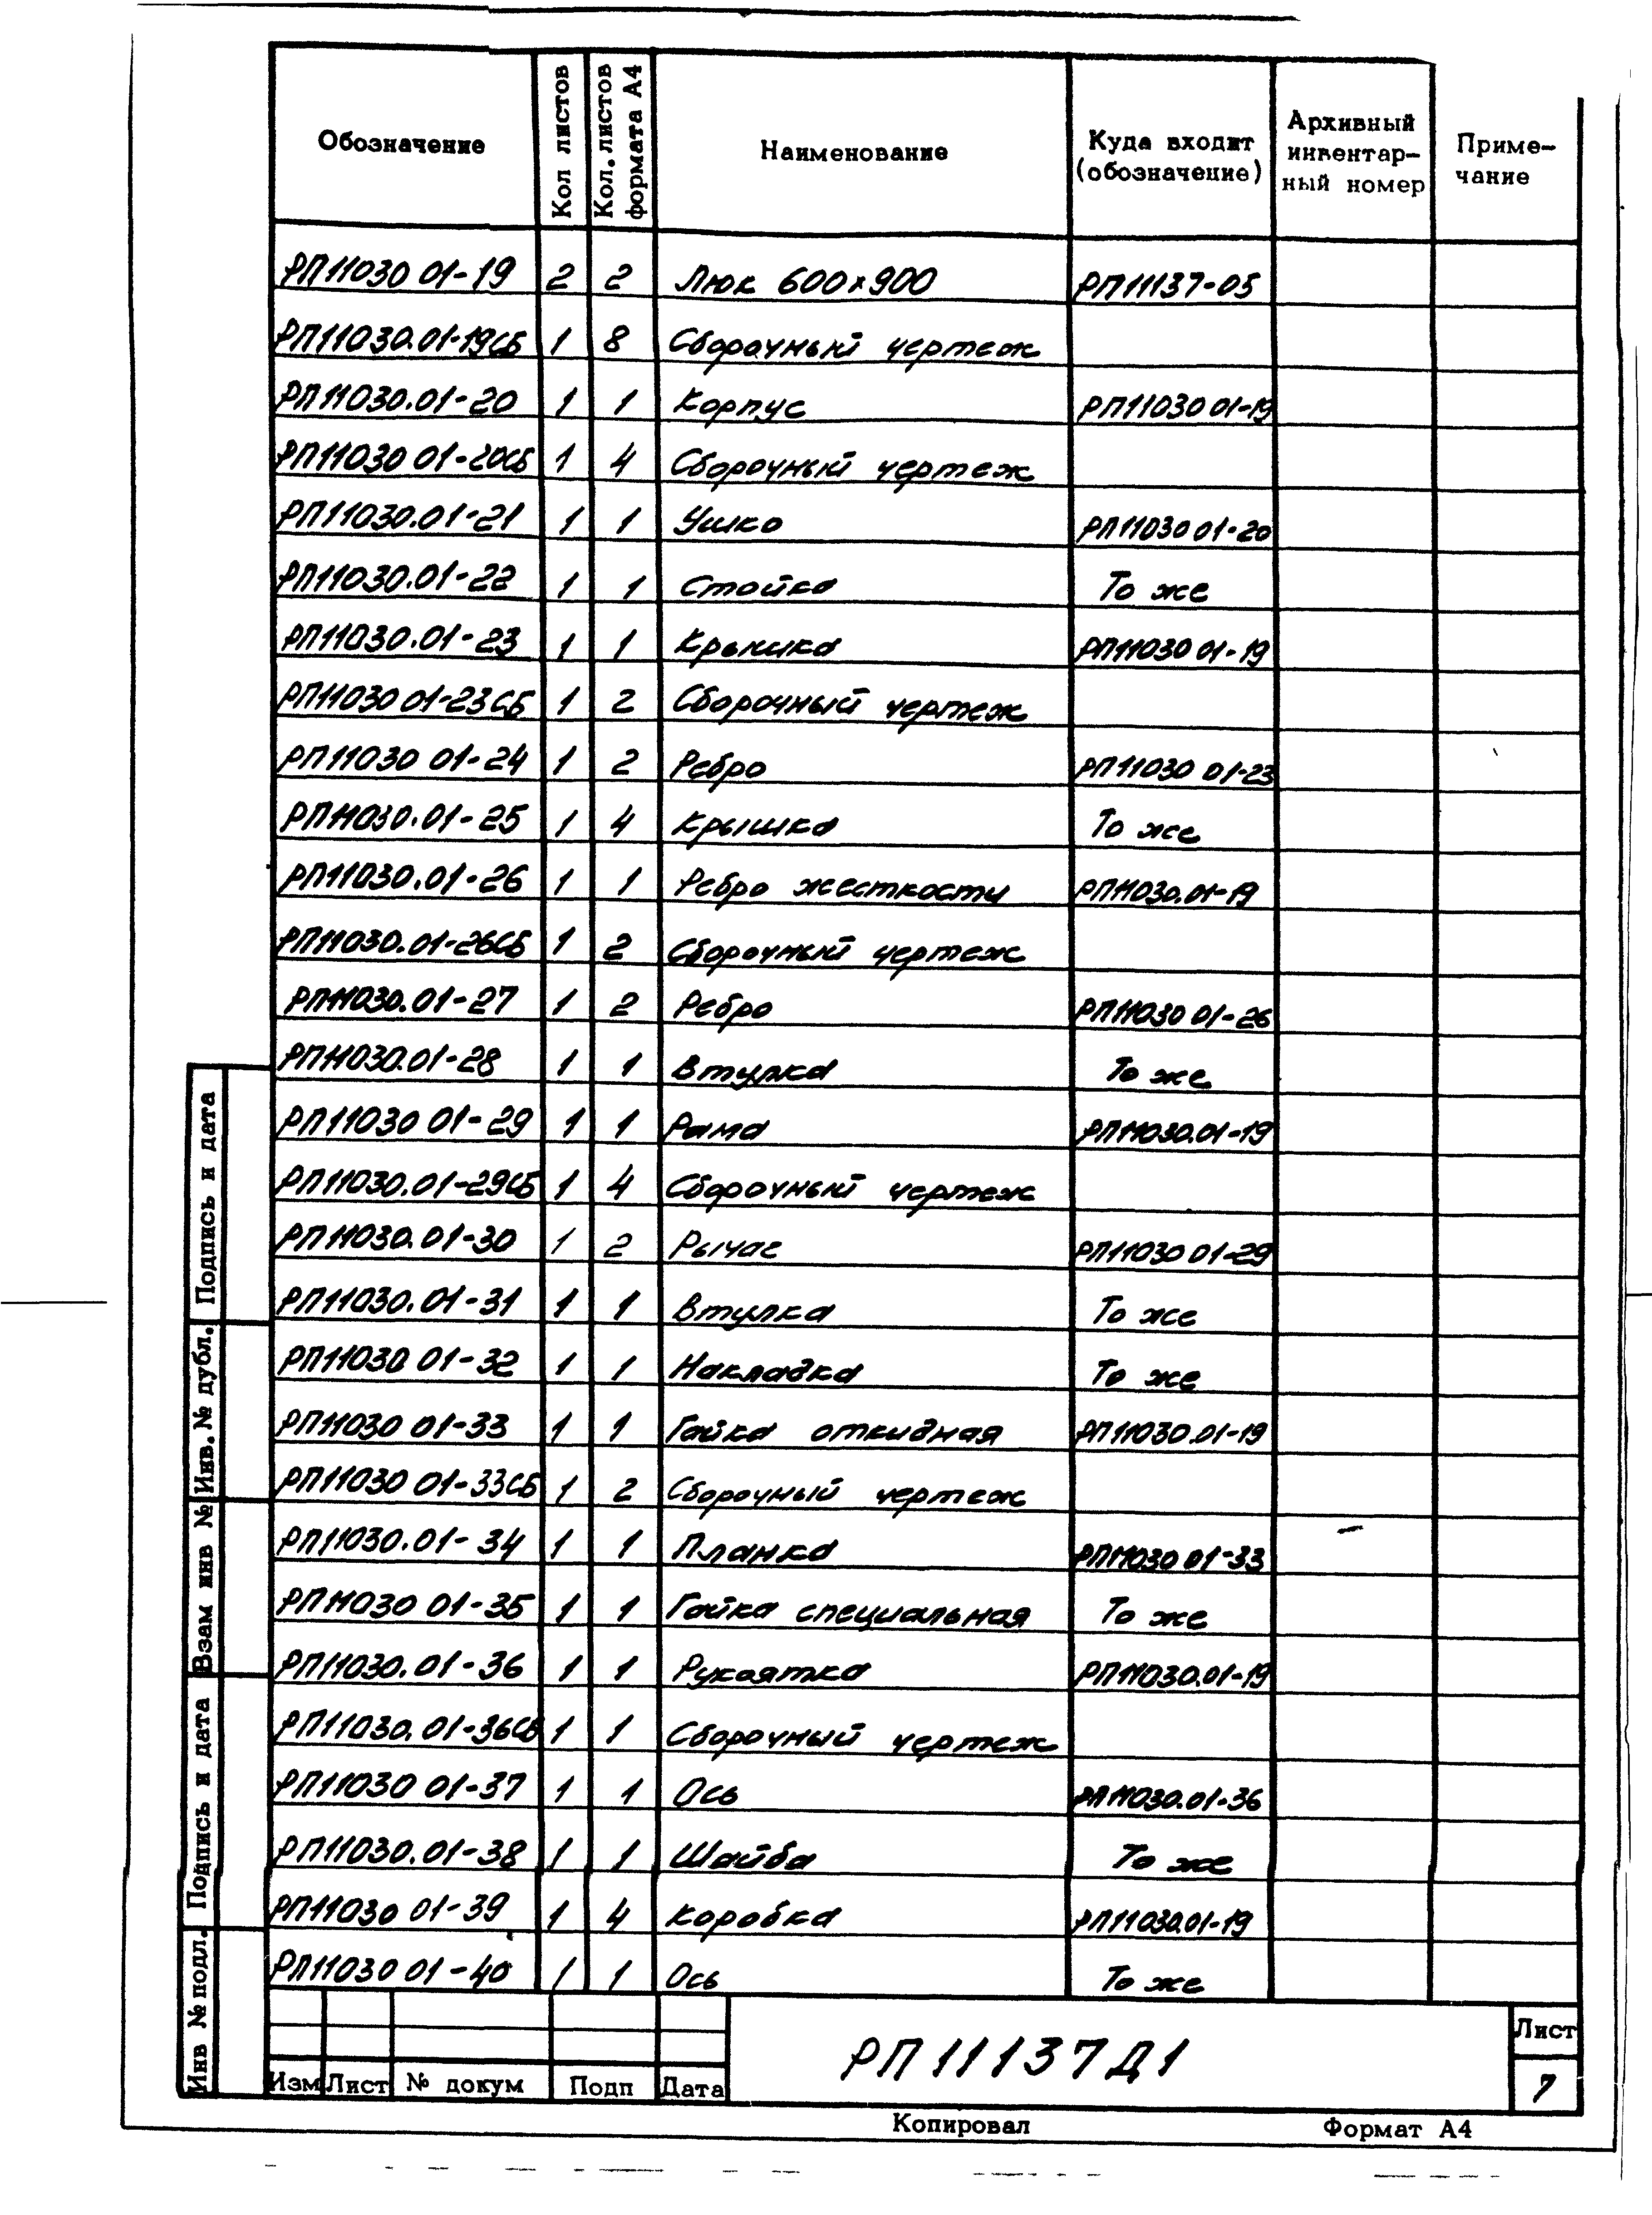 Обозначение Кол листов Кол. листов формата А4 Наименование Куда входит (обозначение) Архивный инвентар- ный номер Приме- чание
РП11030 01-19 2 2 Люк 600×900 РП11137-05
РП11030.01-19СБ 1 8 Сборочный чертеж
РП11030.01-20 1 1 Корпус РП11030 01-19
РП11030 01-20СБ 1 4 Сборочный чертеж
РП11030.01-21 1 1 Ушко РП11030 01-20
РП11030.01-22 1 1 Стойка То же
РП11030.01-23 1 1 Крышка РП11030 01-19
РП11030 01-23СБ 1 2 Сборочный чертеж
РП11030 01-24 1 2 Ребро РП11030 01-23
РП11030.01-25 1 4 Крышка То же
РП11030.01-26 1 1 Ребро жесткости РП11030.01-19
РП11030.01-26СБ 1 2 Сборочный чертеж
РП11030.01-27 1 2 Ребро РП11030 01-26
РП11030.01-28 1 1 Втулка То же
РП11030 01-29 1 1 Рама РП11030.01-19
РП11030.01-29СБ 1 4 Сборочный чертеж
РП11030.01-30 1 2 Рычаг РП11030 01-29
РП11030.01-31 1 1 Втулка То же
РП11030 01-32 1 1 Накладка То же
РП11030 01-33 1 1 Гайка откидная РП11030.01-19
РП11030 01-33СБ 1 2 Сборочный чертеж
РП11030.01-34 1 1 Планка РП11030 01-33
РП11030 01-35 1 1 Гайка специальная То же
РП11030.01-36 1 1 Рукоятка РП11030.01-19
РП11030.01-36СБ 1 1 Сборочный чертеж
РП11030 01-37 1 1 Ось РП11030.01-36
РП11030.01-38 1 1 Шайба То же
РП11030 01-39 1 4 Коробка РП11030.01-19
РП11030 01-40 1 1 Ось То же
Подпись и дата
Инв. № дубл.
Взам инв №
Подпись и дата
Инв № подл.
Изм Лист № докум Подп Дата
РП11137Д1
Лист
7
Копировал Формат А4